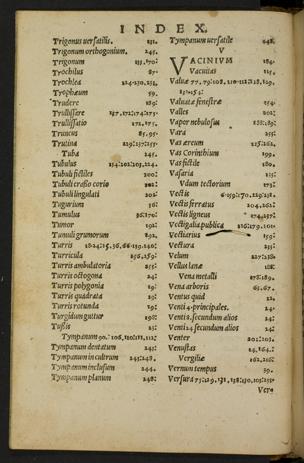 INDEX.
Trigonus uersatilis. 151.
Trigonum orthogonium. 245.
Trigonum 155.170:
Trochilus 87.
Trochlea 224.250.255.
Trophæum 59.
Trudere 189:
Trullissare 157.172:174:275:
Trullissatio 172.175.
Truncus 85.95.
Trutina 229:257:255:
Tuba 245.
Tubulus 254.202:203.224.
Tubuli fictiles 200:
Tubuli crasso corio 202:
Tubuli lingulati 202:
Tugurium 36:
Tumulus 36:170:
Tumor 192:
Tunuli grumorum 192.
Turris
Turricula 256.259:
Turris ambulatoria 255:
Turris octogona 24:
Turris polygonia 19:
Turris quadrata 29:
Turris rotunda 29:
Turgidum guttur 190:
Tussis 23:
Tympanum 90.:106.110:111.112:
Tympanum dentatum 243:
Tympanum in cultrum 243:248.
Tympanum inclusum 244.
Tympanum planum 248:
Tympanum uersatile 248.
V
VACINIVM 184.
Vacuitas 115.
Valuæ 77.79:108.110:112:118.129.
151:154:
Valuatæ fenestræ 154.
Valles 202:
Vapor nebulosus 188:89:
Vara 255:
Vas æreum 125:262.
Vas Corinthium 199.
Vas fictile 180.
Vasaria 115:
Vdum tectorium 175:
Vectis 6.159:70.229:258.
Vectis ferratus 204.262:
Vectis ligneus 274.257:
Vectigalia publica
Vectiarius 159:
Vectura 255:
Velum 227:258.
Vellus lanæ 188:
Vena metalli 278:189.
Vena arboris 65.67.
Ventus quid 22.
Venti 4 principales. 24.
Venti 8. secundum alios 24:
Venti 24 secundum alios 24:
Venter 202:203.
Venustas 24.164.:
Vergiliæ 162.211:
Vernum tempus 59.
Versura 75:129.131.138:150.105:255:
Ver=